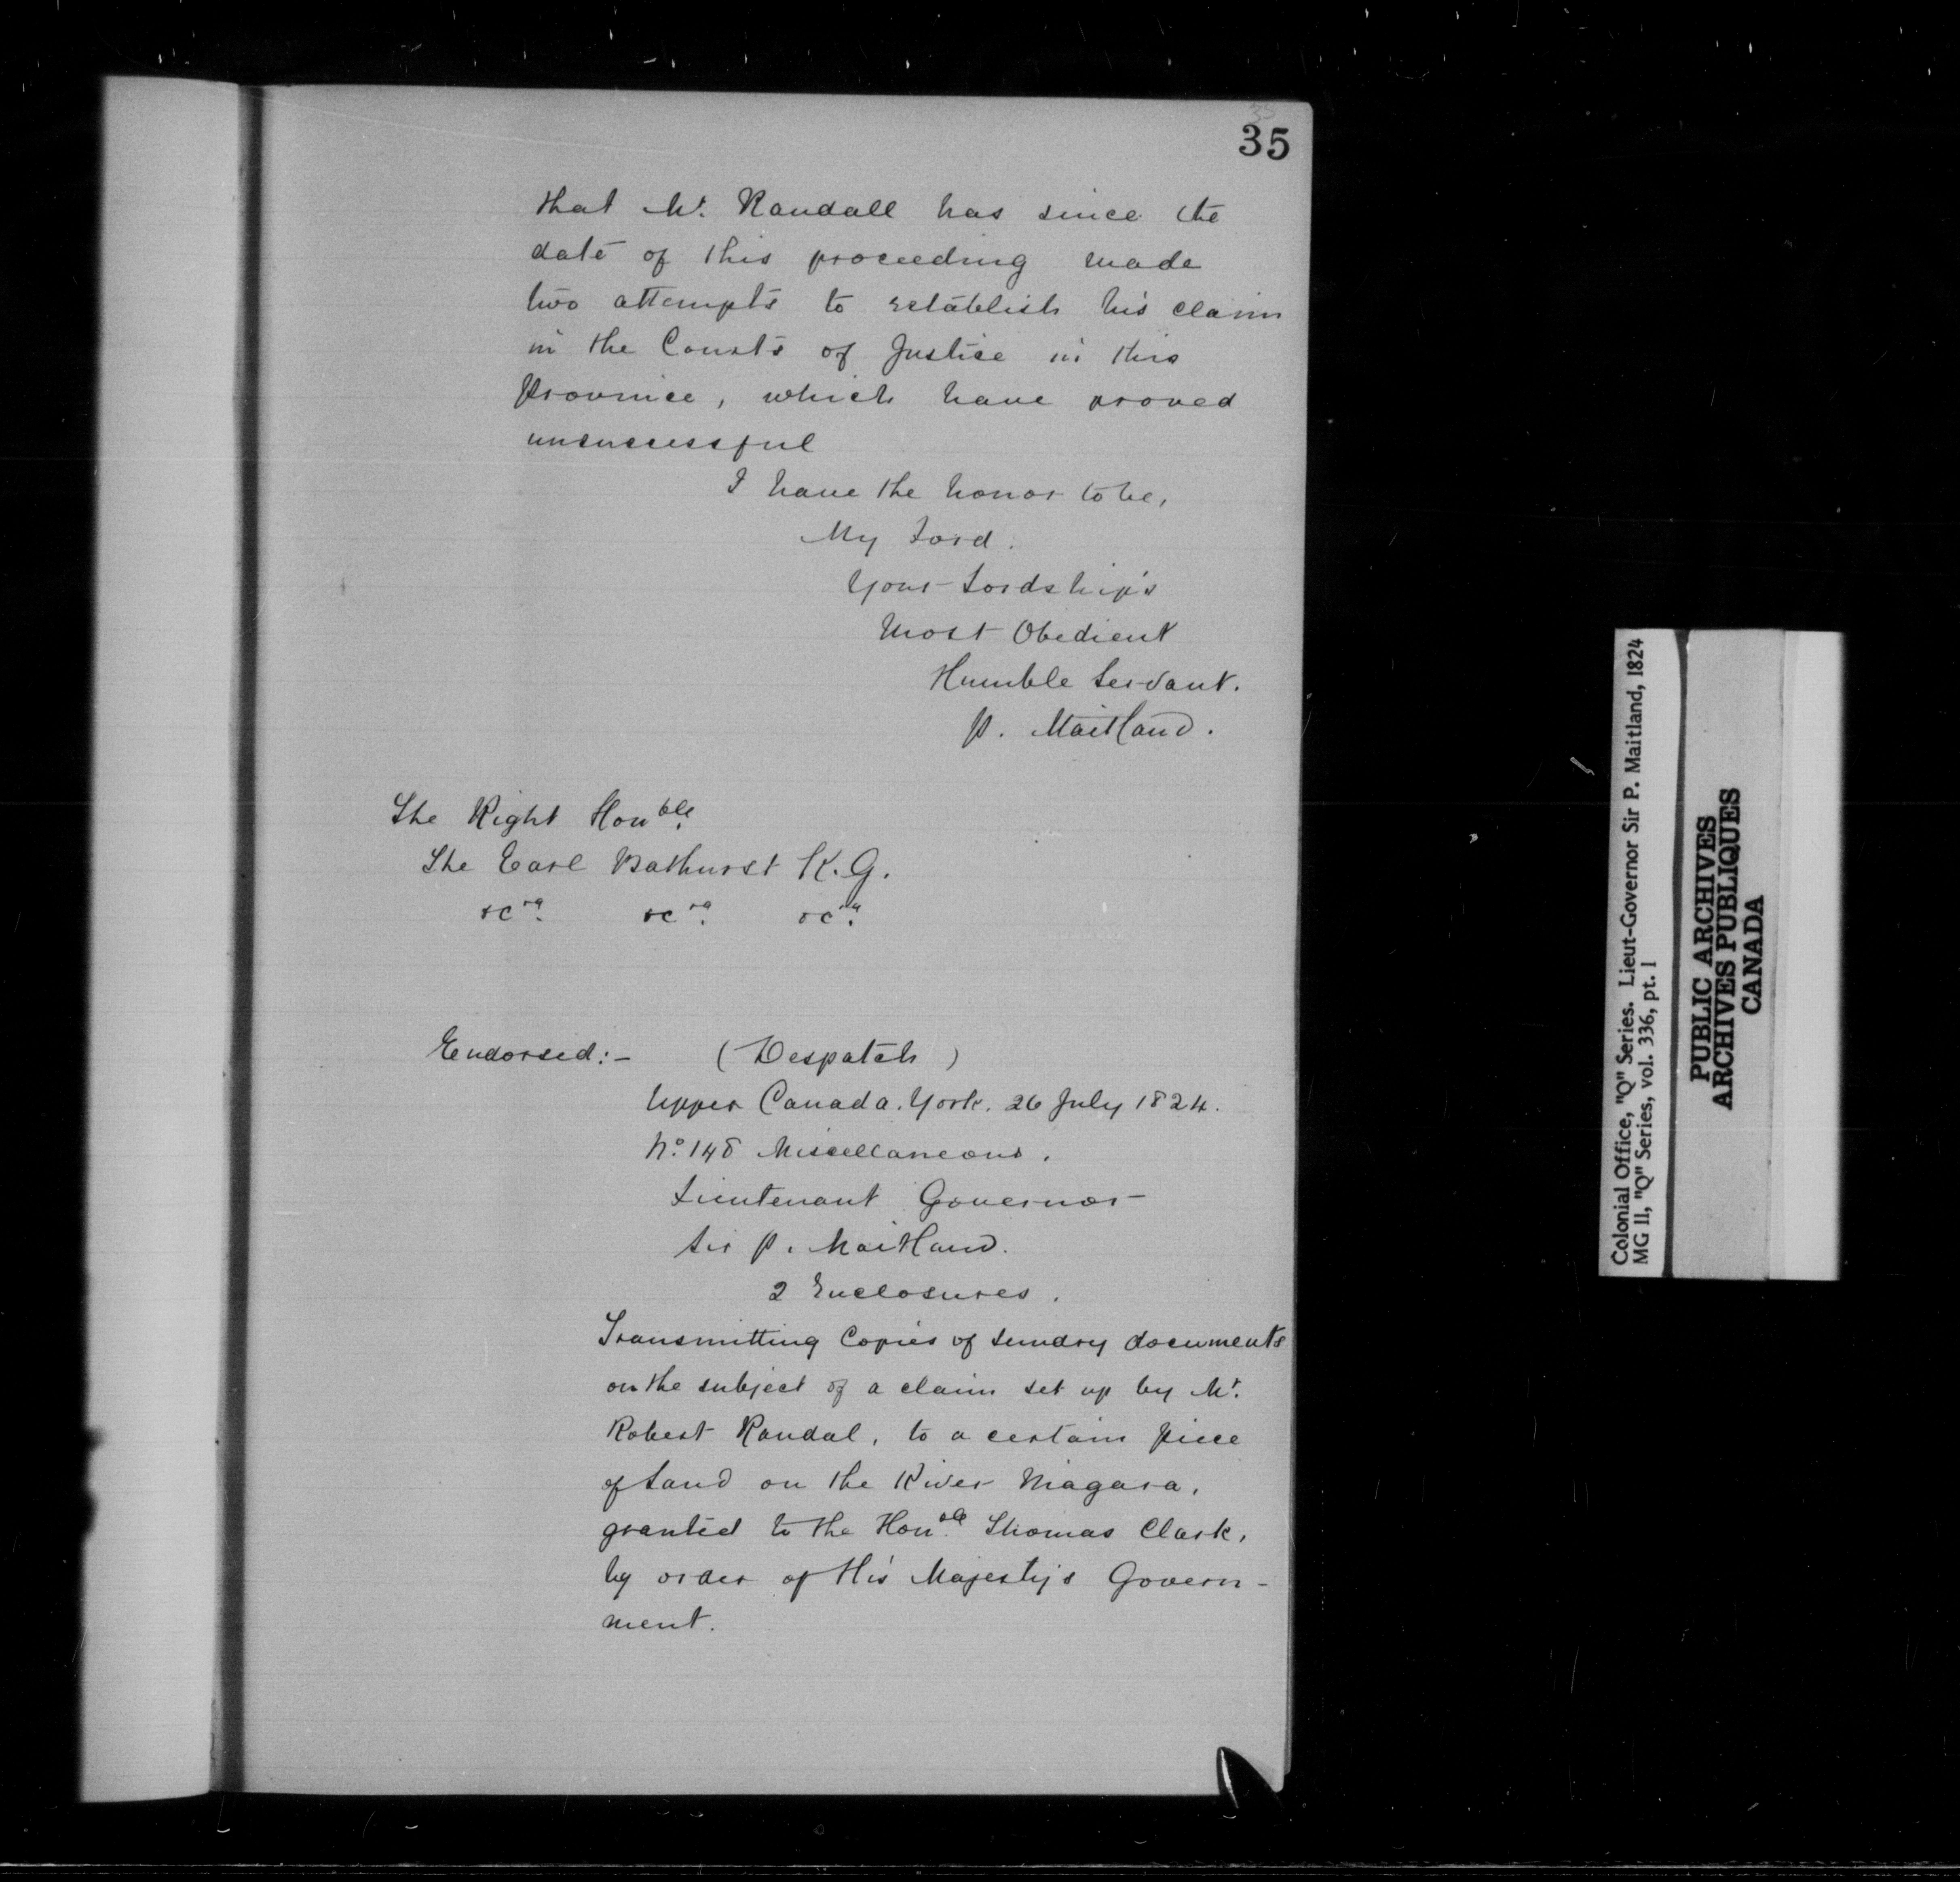 35
that Mr. Randall has since the
date of this proceeding made
two attempts to establish his claim
in the Courts of Justice in this
Province, which have proved
unsuccessful
I have the honor to be,
My Lord.
Your Lordship's
Most Obedient
Humble Servant.
P. Maitland.
The Right Honble.
The Earl Bathurst K.G.
&ca. &ca. &ca.
Endorsed:- (Despatch)
Upper Canada. York. 26 July 1824.
No. 148 Miscellaneous.
Lieutenant Governor
Sir P. Maitland.
2 Enclosures.
Transmitting Copies of sundry documents
on the subject of a claim set up by Mr.
Robert Randal, to a certain piece
of Land on the River Niagara,
granted to the Honble. Thomas Clark,
by order of His Majesty's Govern-
ment.
Colonial Office, "Q" Series. Lieut-Governor Sir P. Maitland, 1824
MG 11, "Q" Series, vol. 336, pt. 1
PUBLIC ARCHIVES
ARCHIVES PUBLIQUES
CANADA